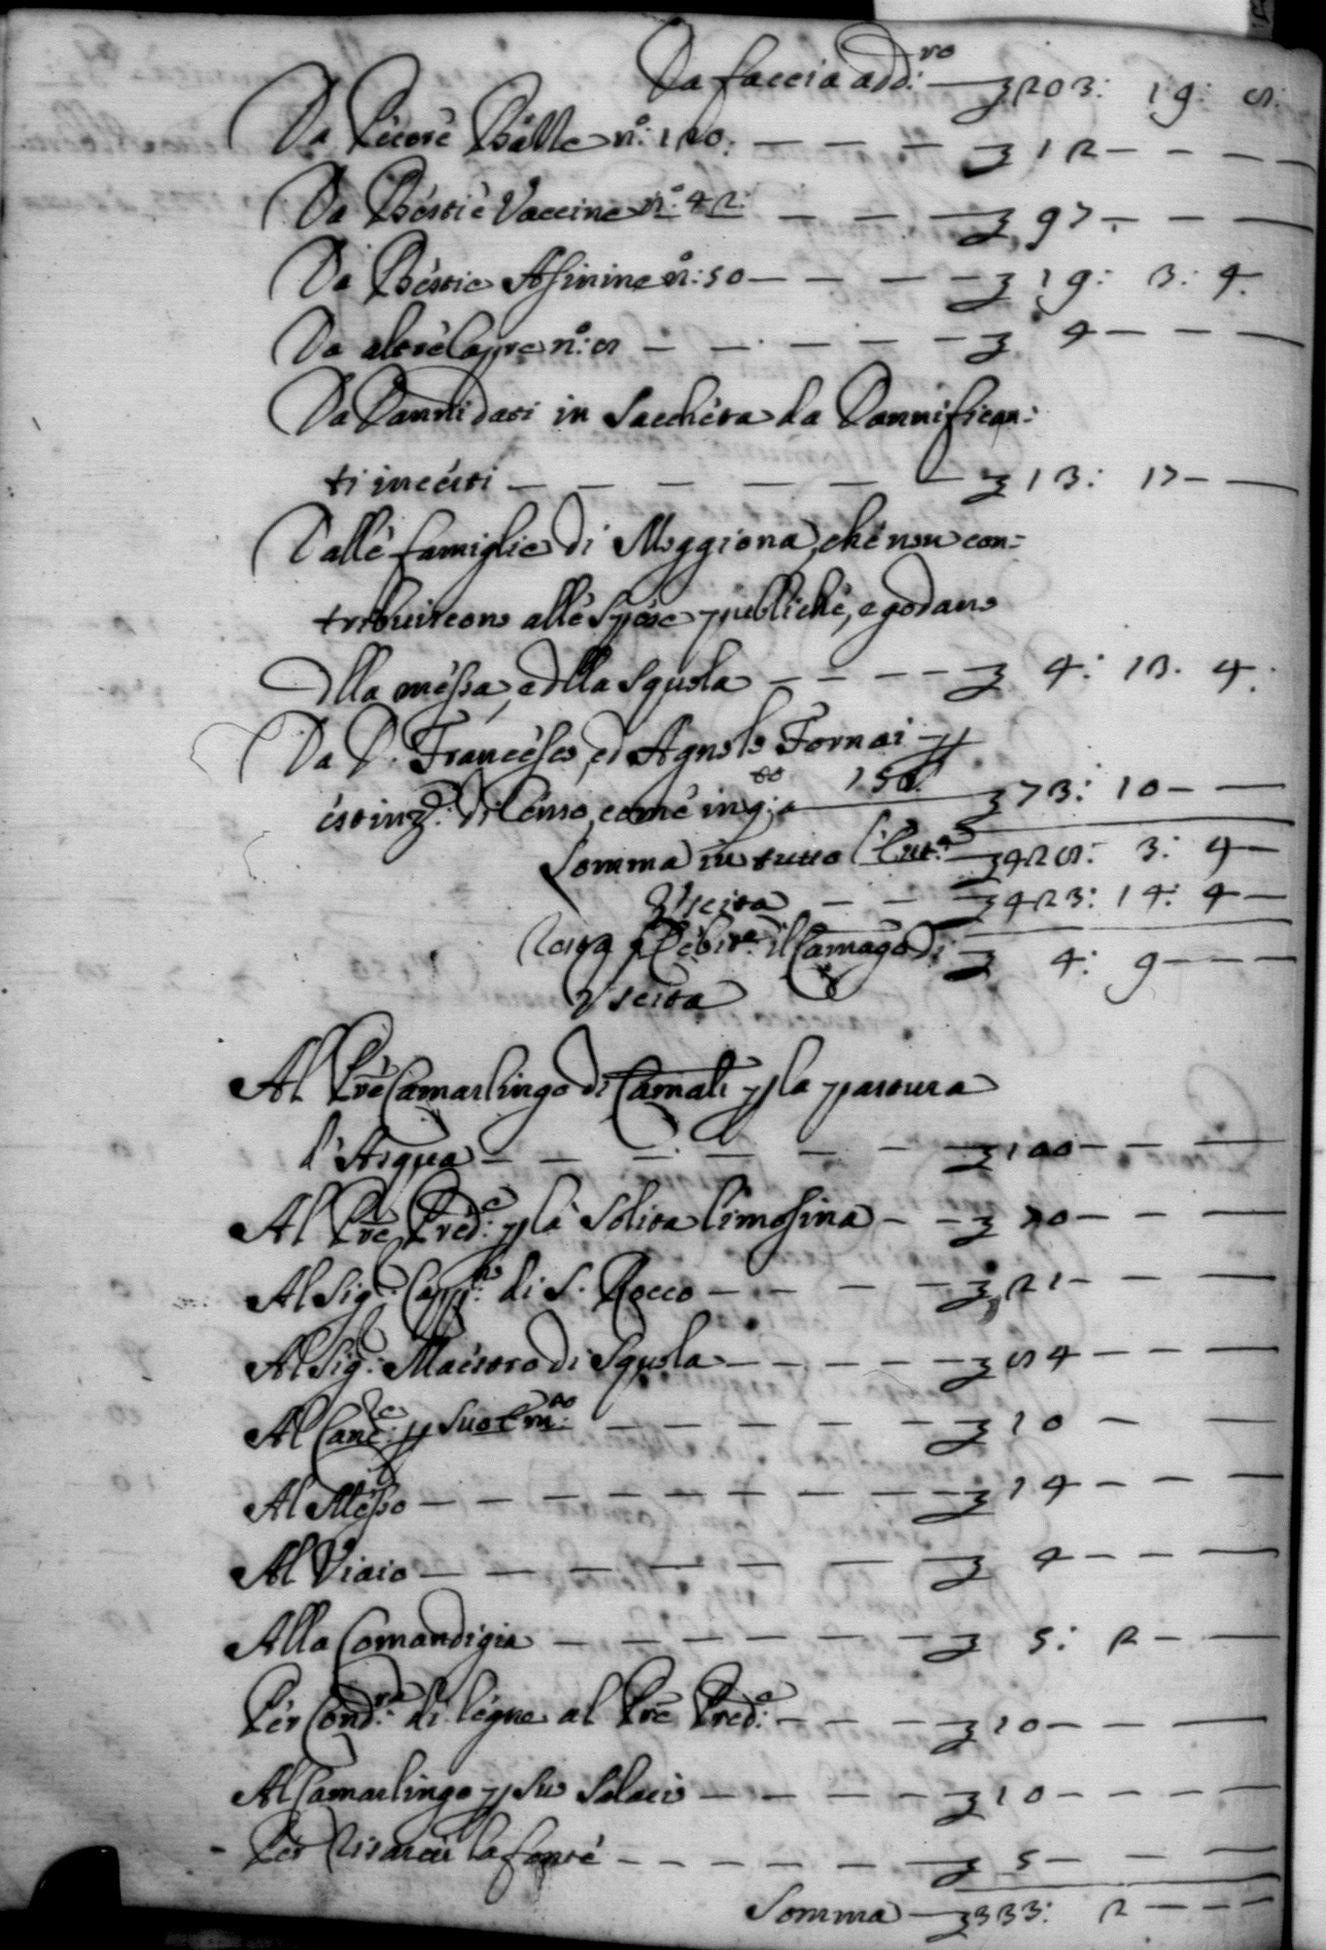 Da faccia add:ro — 203: 19: 8:
Da Pecore Balle n.o: 120: — 12 —
Da Bestie Vaccine n.o: 42: — 97 —
Da Bestie Asinine n.o: 50 — 19: 3: 4
Da altre Capre n.o: 8 — 4 —
Da Danni dati in Sacchéta da Dannifican:
ti incerti — 13: 17 —
Dalle famiglie di Moggiona, che non con:
tribuiscono alle Spese publiche, e godano
della messa, e della Squola — 4: 13. 4.
Da D. Francesco, ed Agnolo Fornai p
éstinz.: di Censo, come in q:o a 150. — 73: 10 —
Somma in tutto l'Ent.a — 428: 3: 4 —
Uscita — 423: 14: 4 —
Resta p Debit.e il Camago di — 4: 9 —
Uscita
Al Pre Camarlingo di Camali p la pastura
d'Aiqua — 100 —
Al Pre Pred:e p la Solita limosina — 70 —
Al Sig. Capp:no di S. Rocco — 21 —
Al Sig. Maestro di Squola — 84 —
Al Canc:e p suo Em:to — 10 —
Al Messo — 14 —
Al Viaio — 4 —
Alla Comandigia — 5: 2 —
Per Cond:ra di legne al Pre Pred:e — 10 —
Al Camarlingo p suo Salario — 10 —
Per Risarcir la fonte — 5 —
Somma — 333: 2 —